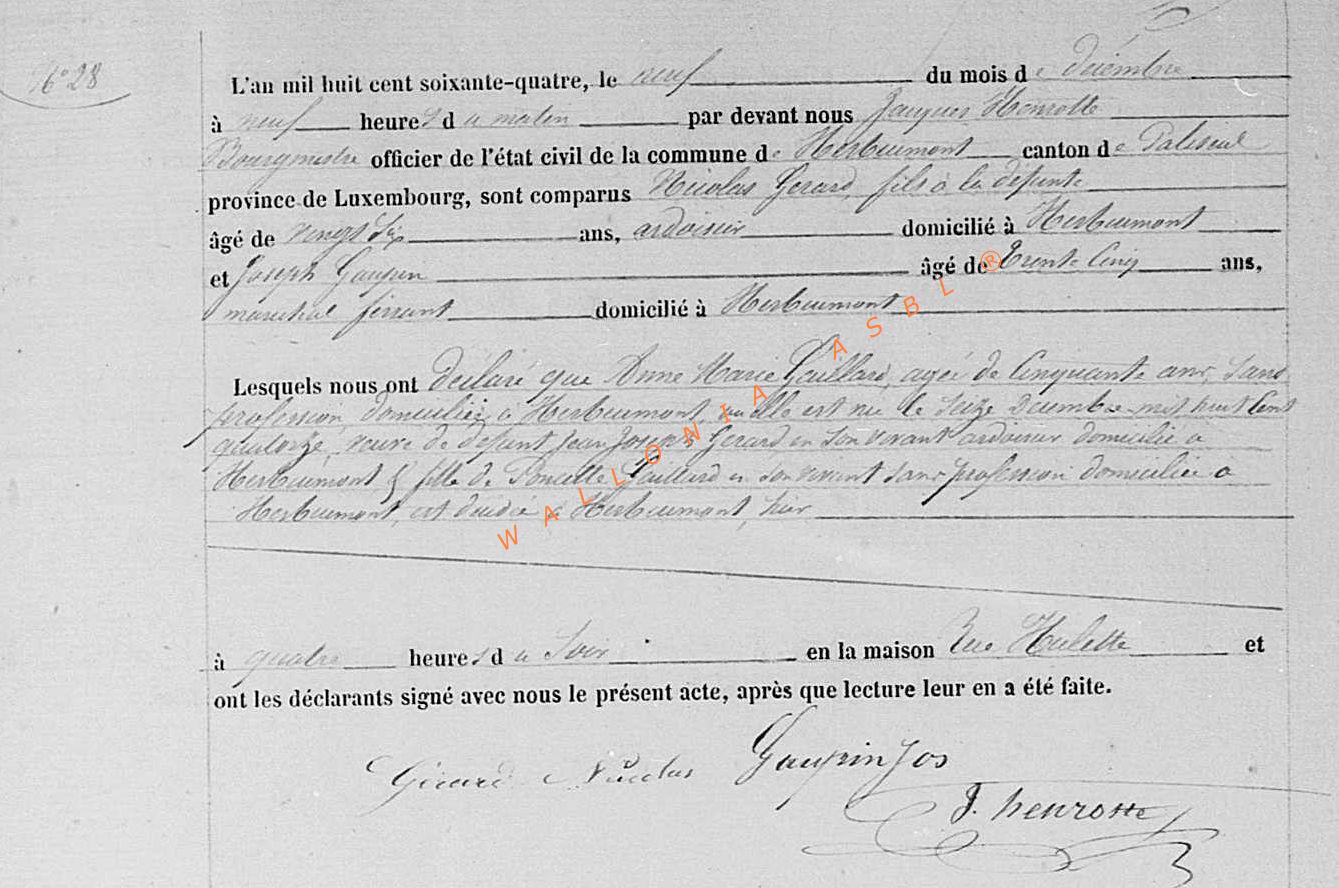 N° 28
L'an mil huit cent soixante-quatre, le neuf du mois de Décembre
à neuf heures du matin par devant nous Jacques Henrotte
Bourgmestre officier de l'état civil de la commune de Herbeumont canton de Paliseul
province de Luxembourg, sont comparus Nicolas Gerard, fils à la défunte
âgé de vingt Six ans, ardoisier domicilié à Herbeumont
et Joseph Gaupin âgé de Trente Cinq ans,
marechal ferrant domicilié à Herbeumont
Lesquels nous ont déclaré que Anne Marie Gaillard, agée de Cinquante ans, Sans
profession, domiciliée a Herbeumont, où elle est née le Seize Décembre mil huit Cent
quatorze, veuve de défunt Jean Joseph Gerard en son vivant ardoisier domicilié a
Herbeumont & fille de Gaillard en son vivant sans profession domiciliée a
Herbeumont, est décédée a Herbeumont, hier
à quatre heures du Soir en la maison Rue Hulette et
ont les déclarants signé avec nous le présent acte, après que lecture leur en a été faite.
Gérard Nicolas Gaupin Jos
J. henrotte
WALLONIA ASBL ®